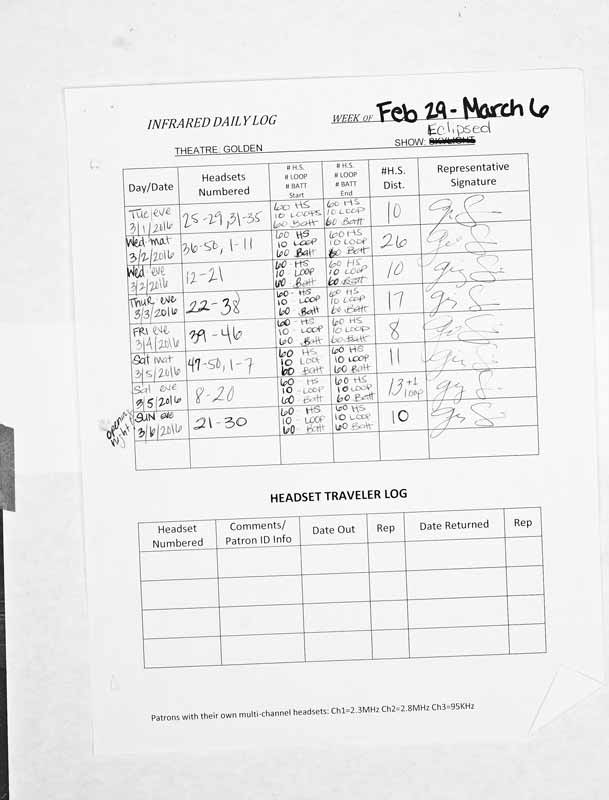 INFRARED DAILY LOG WEEK OF Feb 29 - March 6
Eclipsed
THEATRE: GOLDEN SHOW: SKYLIGHT
Day/Date Headsets Numbered # H.S. # LOOP # BATT Start # H.S. # LOOP # BATT End #H.S. Dist. Representative Signature
Tue eve 3/1/2016 25-29, 31-35 60 HS 10 LOOPS 60 Batt 60 HS 10 LOOP 60 Batt 10
Wed mat 3/2/2016 36-50, 1-11 60 HS 10 LOOP 60 Batt 60 HS 10 LOOP 60 Batt 26
Wed eve 3/2/2016 12-21 60 HS 10 LOOP 60 Batt 60 HS 10 LOOP 60 Batt 10
Thur eve 3/3/2016 22-38 60 HS 10 LOOP 60 Batt 60 HS 10 LOOP 60 Batt 17
FRI eve 3/4/2016 39-46 60 HS 10 LOOP 60 Batt 60 HS 10 LOOP 60 Batt 8
Sat mat 3/5/2016 47-50, 1-7 60 HS 10 LOOP 60 Batt 60 HS 10 LOOP 60 Batt 11
Sat eve 3/5/2016 8-20 60 HS 10 LOOP 60 Batt 60 HS 10 LOOP 60 Batt 13 +1 loop
opening night! SUN eve 3/6/2016 21-30 60 HS 10 LOOP 60 Batt 60 HS 10 LOOP 60 Batt 10
HEADSET TRAVELER LOG
Headset Numbered Comments/ Patron ID Info Date Out Rep Date Returned Rep
Patrons with their own multi-channel headsets: Ch1=2.3MHz Ch2=2.8MHz Ch3=95KHz